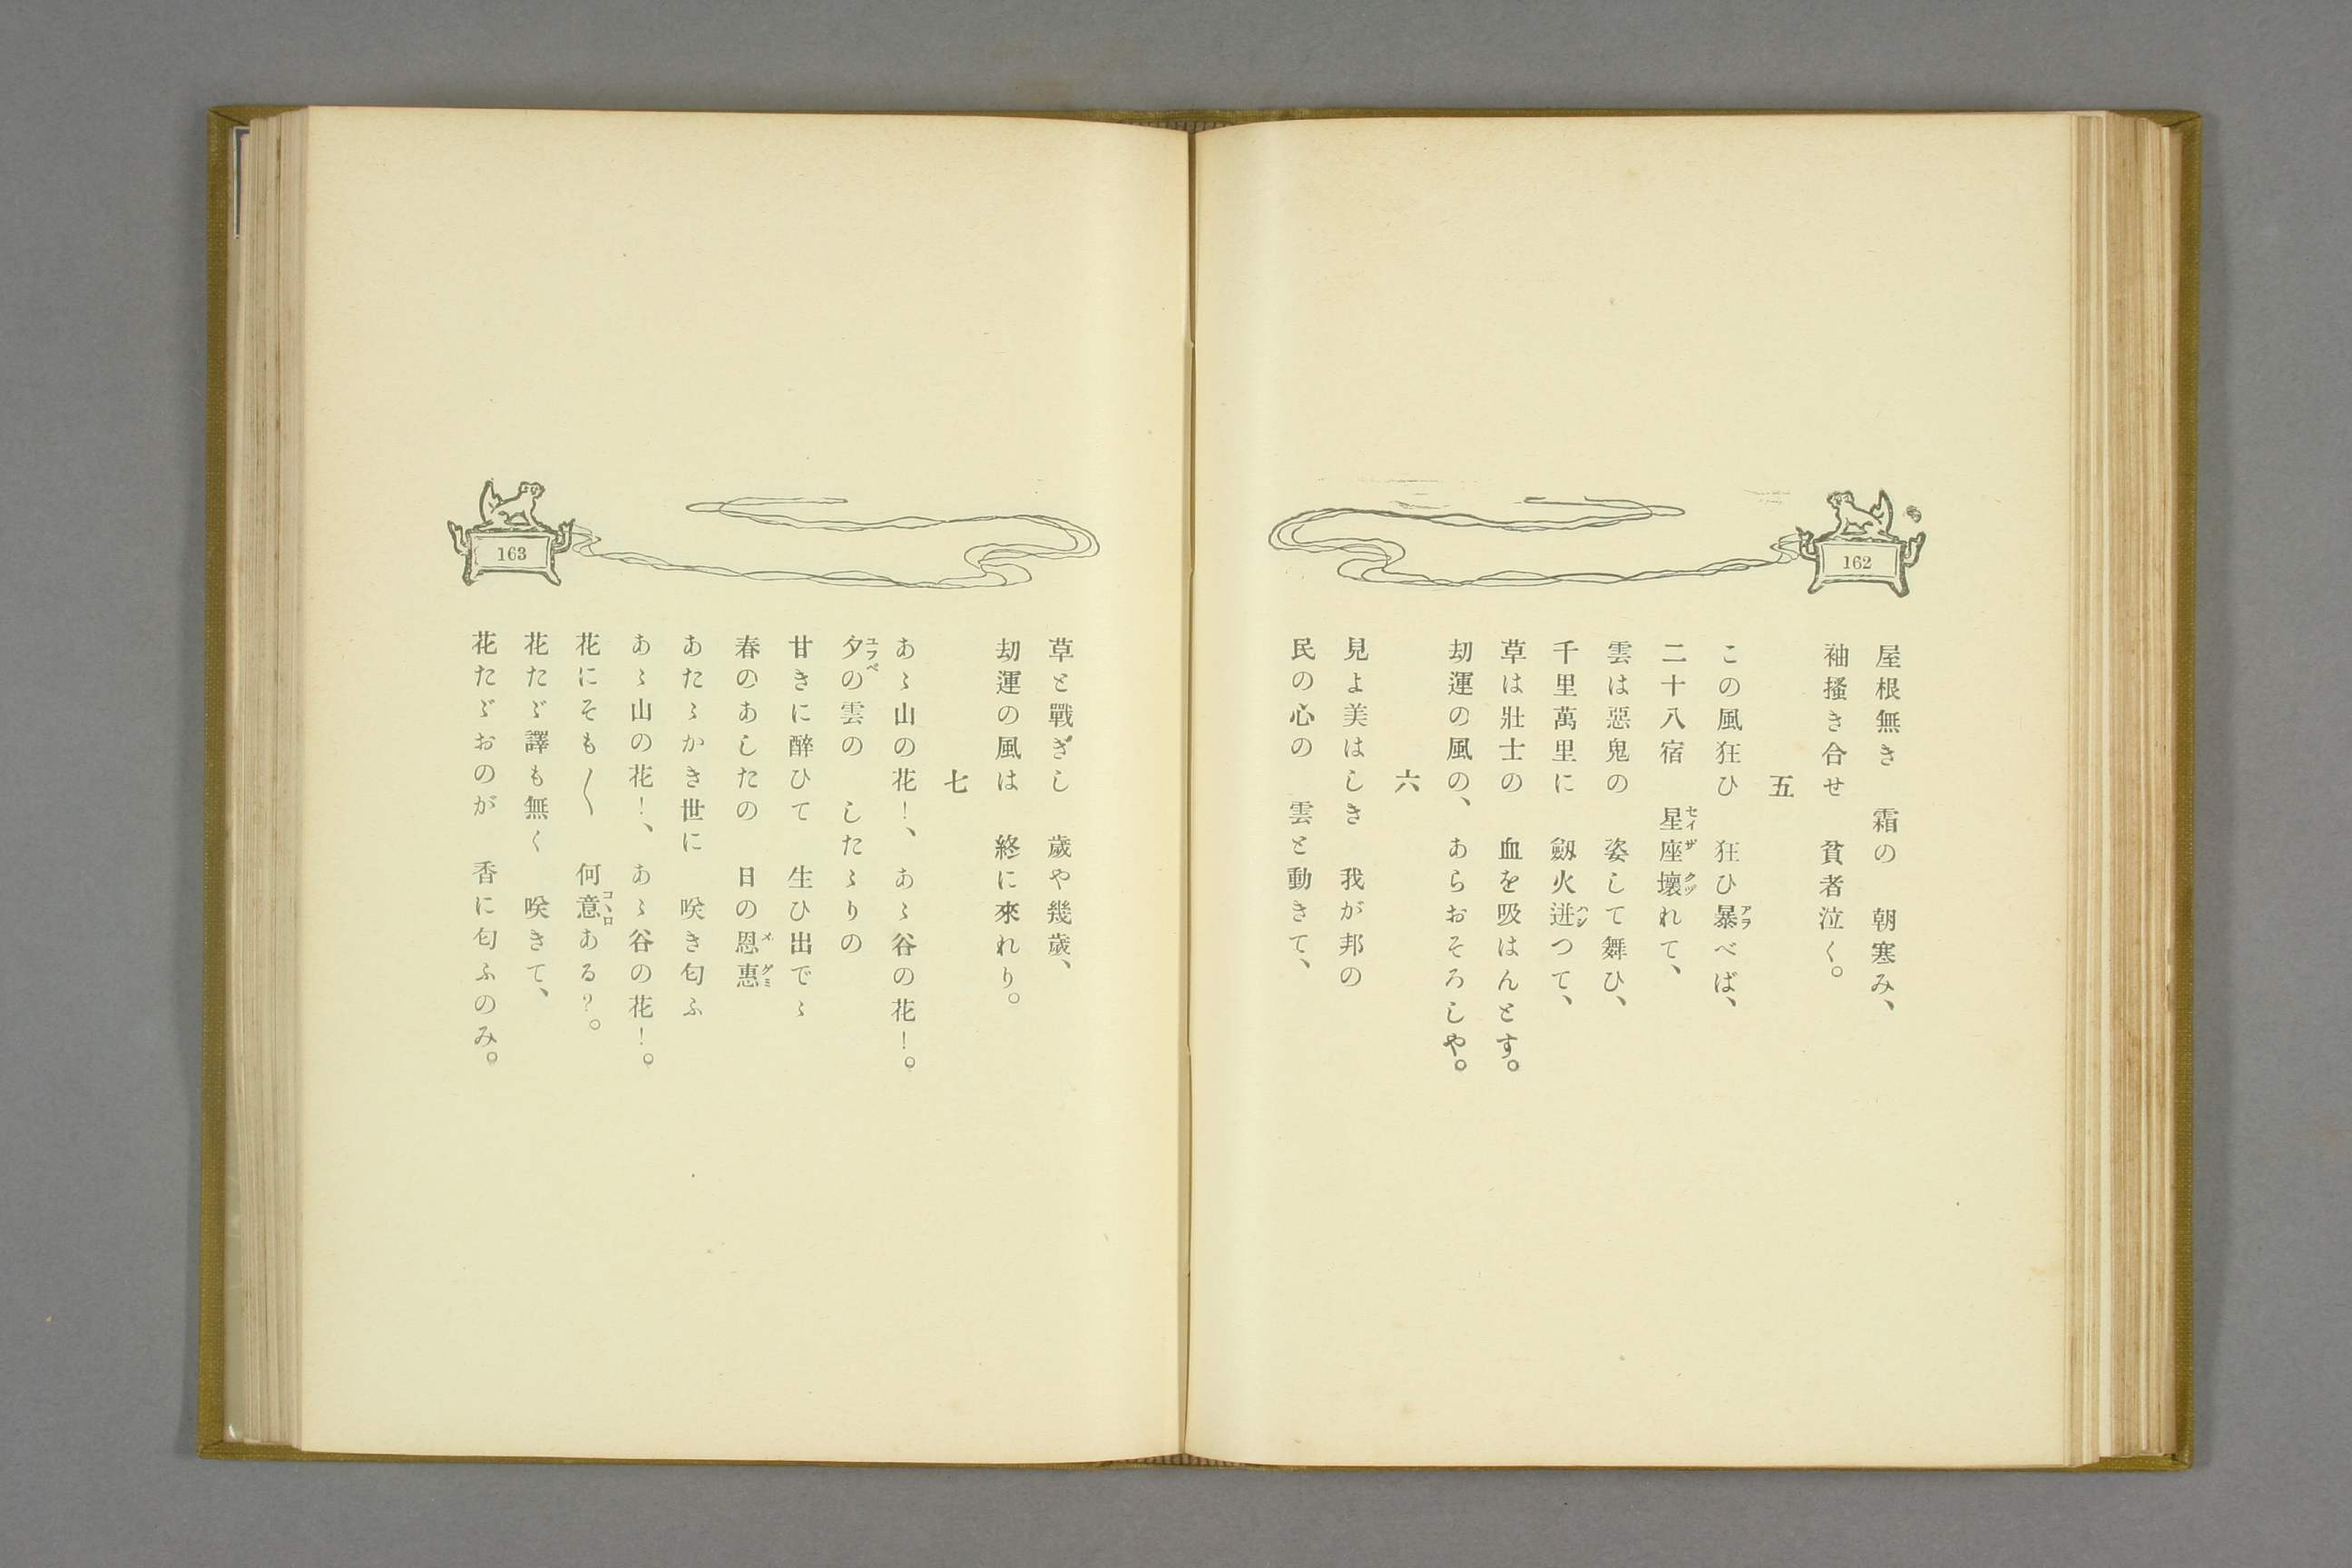 162
屋根無き　霜の　朝寒み、
袖搔き合せ　貧者泣く。
五
この風狂ひ　狂ひ暴べば、
二十八宿　星座壞れて、
雲は惡鬼の　姿して舞ひ、
千里萬里に　劔火迸つて、
草は壯士の　血を吸はんとす。
刧運の風の、　あらおそろしや。
六
見よ美はしき　我が邦の
民の心の　雲と動きて、
163
草と戰ぎし　歲や幾歲、
刧運の風は　終に來れり。
七
あゝ山の花！、　あゝ谷の花！。
夕の雲の　したゝりの
甘きに醉ひて　生ひ出でゝ
春のあしたの　日の恩惠
あたゝかき世に　咲き匂ふ
あゝ山の花！、　あゝ谷の花！。
花にそも〳〵　何意ある？。
花たゞ譯も無く　咲きて、
花たゞおのが　香に匂ふのみ。